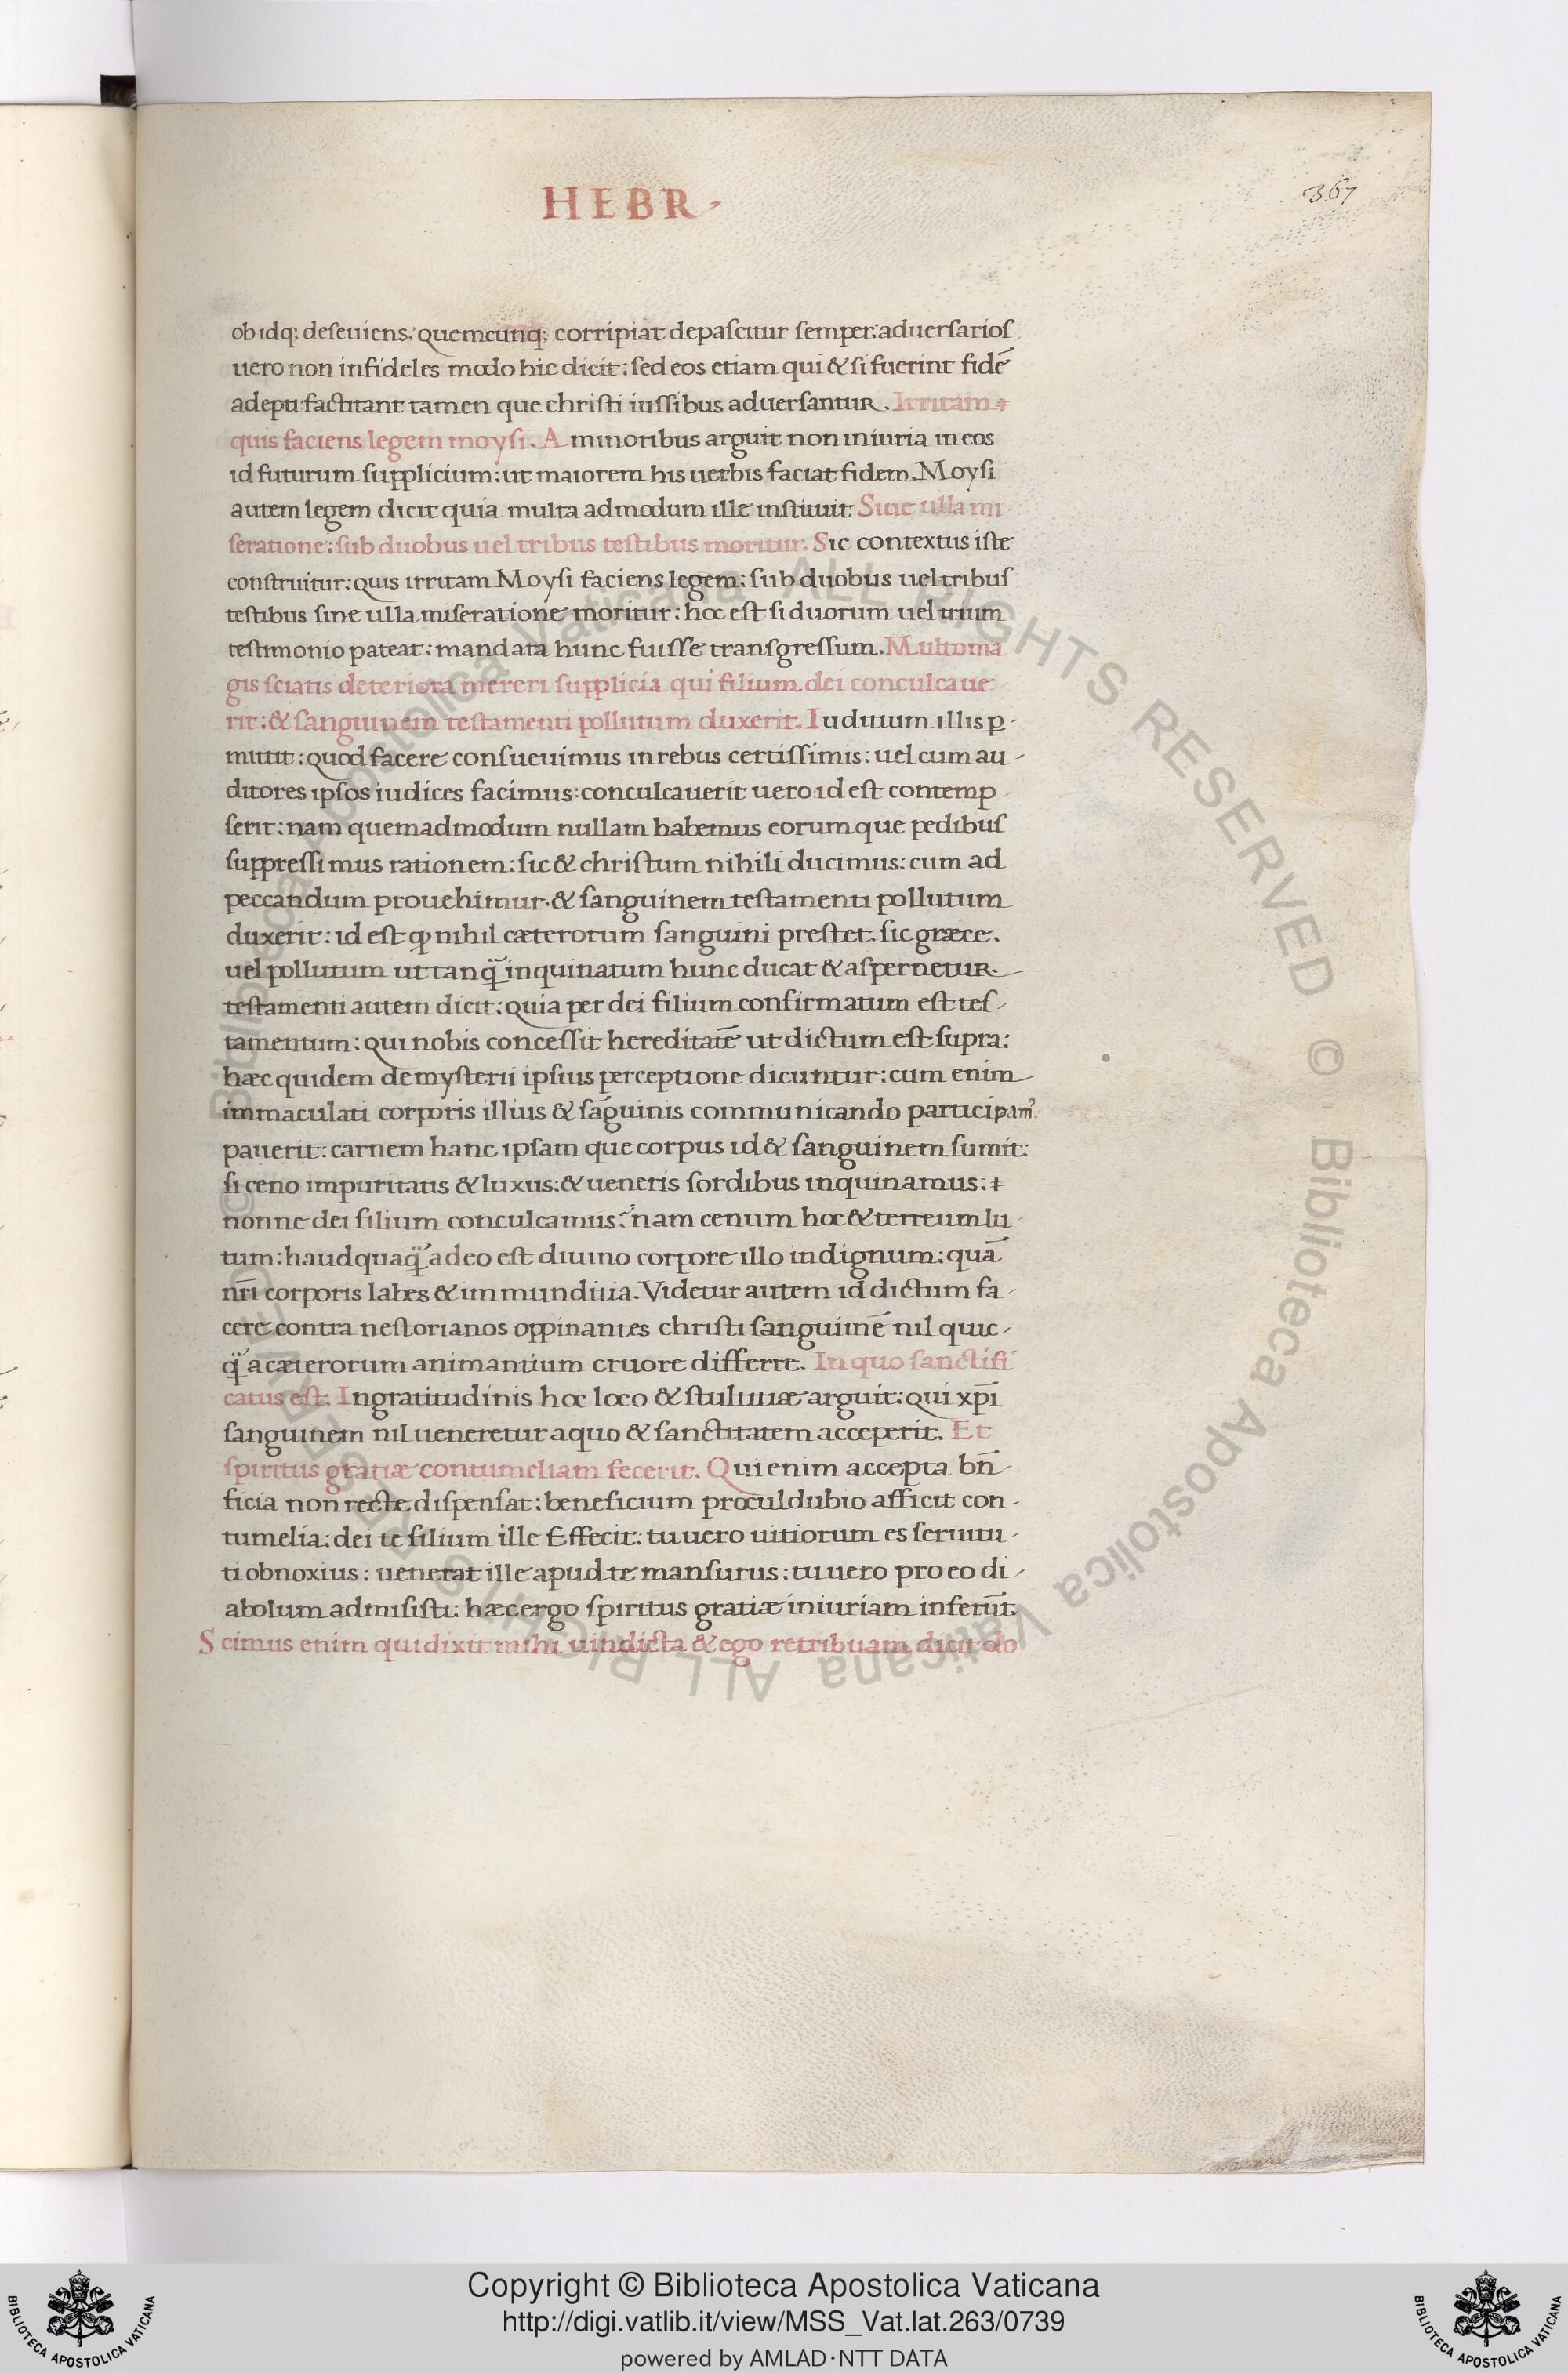 HEBR
367
ob idq; deseuiens: quemcunq; corripiat depascitur semper: aduersarios
uero non infideles modo hic dicit: sed eos etiam qui & si fuerint fidē
adepti: factitant tamen que christi iussibus aduersantur. Irritam
quis faciens legem moysi. A minoribus arguit non iniuria in eos
id futurum supplicium: ut maiorem his uerbis faciat fidem. Moysi
autem legem dicit quia multa admodum ille instituit Siue ulla mi
seratione: sub duobus uel tribus testibus moritur. Sic contextus iste
construitur: quis irritam Moysi faciens legem: sub duobus uel tribus
testibus sine ulla miseratione moritur: hoc est si duorum uel trium
testimonio pateat: mandata hunc fuisse transgressum. Multo ma
gis sciatis deteriora mereri supplicia qui filium dei conculcaue-
rit: & sanguinem testamenti pollutum duxerit. Iuditium illis ꝑ-
mittit: quod facere consueuimus in rebus certissimis: uel cum au-
ditores ipsos iudices facimus: conculcauerit uero id est contemp-
serit: nam quemadmodum nullam habemus eorum que pedibus
suppressimus rationem: sic & christum nihili ducimus: cum ad
peccandum prouehimur. & sanguinem testamenti pollutum
duxerit: id est ꝙ nihil cæterorum sanguini prestet. sic græce.
uel pollutum ut tanq̃ inquinatum hunc ducat & aspernetur.
testamenti autem dicit: quia per dei filium confirmatum est tes-
tamentum: qui nobis concessit hereditatē ut dictum est supra:
hæc quidem de mysterii ipsius perceptione dicuntur: cum enim
immaculati corporis illius & sāguinis communicando participam9
pauerit: carnem hanc ipsam que corpus id & sanguinem sumit:
si ceno impuritatis & luxus: & ueneris sordibus inquinamus:
nonne dei filium conculcamus? nam cenum hoc & terreum lu-
tum: haudquaq̃ adeo est diuino corpore illo indignum: quā
nr̄i corporis labes & immunditia. Videtur autem id dictum fa-
cere contra nestorianos oppinantes christi sanguinē nil quic-
q̃ a cæterorum animantium cruore differre. In quo sanctifi
catus est. Ingratitudinis hoc loco & stultitiæ arguit: qui xp̄i
sanguinem nil ueneretur a quo & sanctitatem acceperit. Et
spiritus gratiæ contumeliam fecerit. Qui enim accepta bn̄-
ficia non recte dispensat: beneficium proculdubio afficit con-
tumelia: dei te filium ille Effecit: tu uero uitiorum es seruitu-
ti obnoxius: uenerat ille apud te mansurus: tu uero pro eo di-
abolum admisisti: hæc ergo spiritus gratiæ iniuriam inferūt.
Scimus enim qui dixit mihi uindicta & ego retribuam dicit do
© Biblioteca Apostolica Vaticana ALL RIGHTS RESERVED © Biblioteca Apostolica Vaticana ALL RIGHTS RESERVED
Copyright © Biblioteca Apostolica Vaticana
http://digi.vatlib.it/view/MSS_Vat.lat.263/0739
powered by AMLAD·NTT DATA
BIBLIOTECA APOSTOLICA VATICANA
BIBLIOTECA APOSTOLICA VATICANA